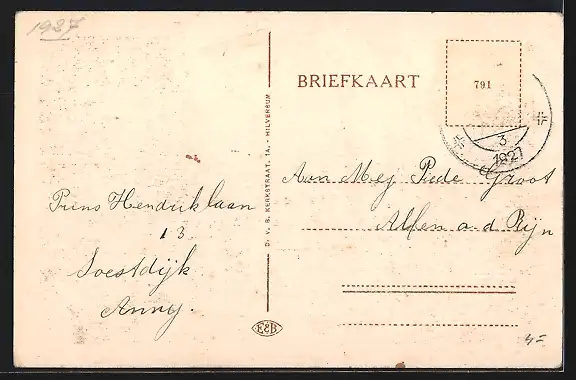 1937
BRIEFKAART
791
3
1927
D. v. B. KERKSTRAAT, 1A. - HILVERSUM
Prins Hendriklaan
13
Soestdijk
Anny.
Aan Mej Piede Groot
Alfen a-d Rijn
E&B
4=